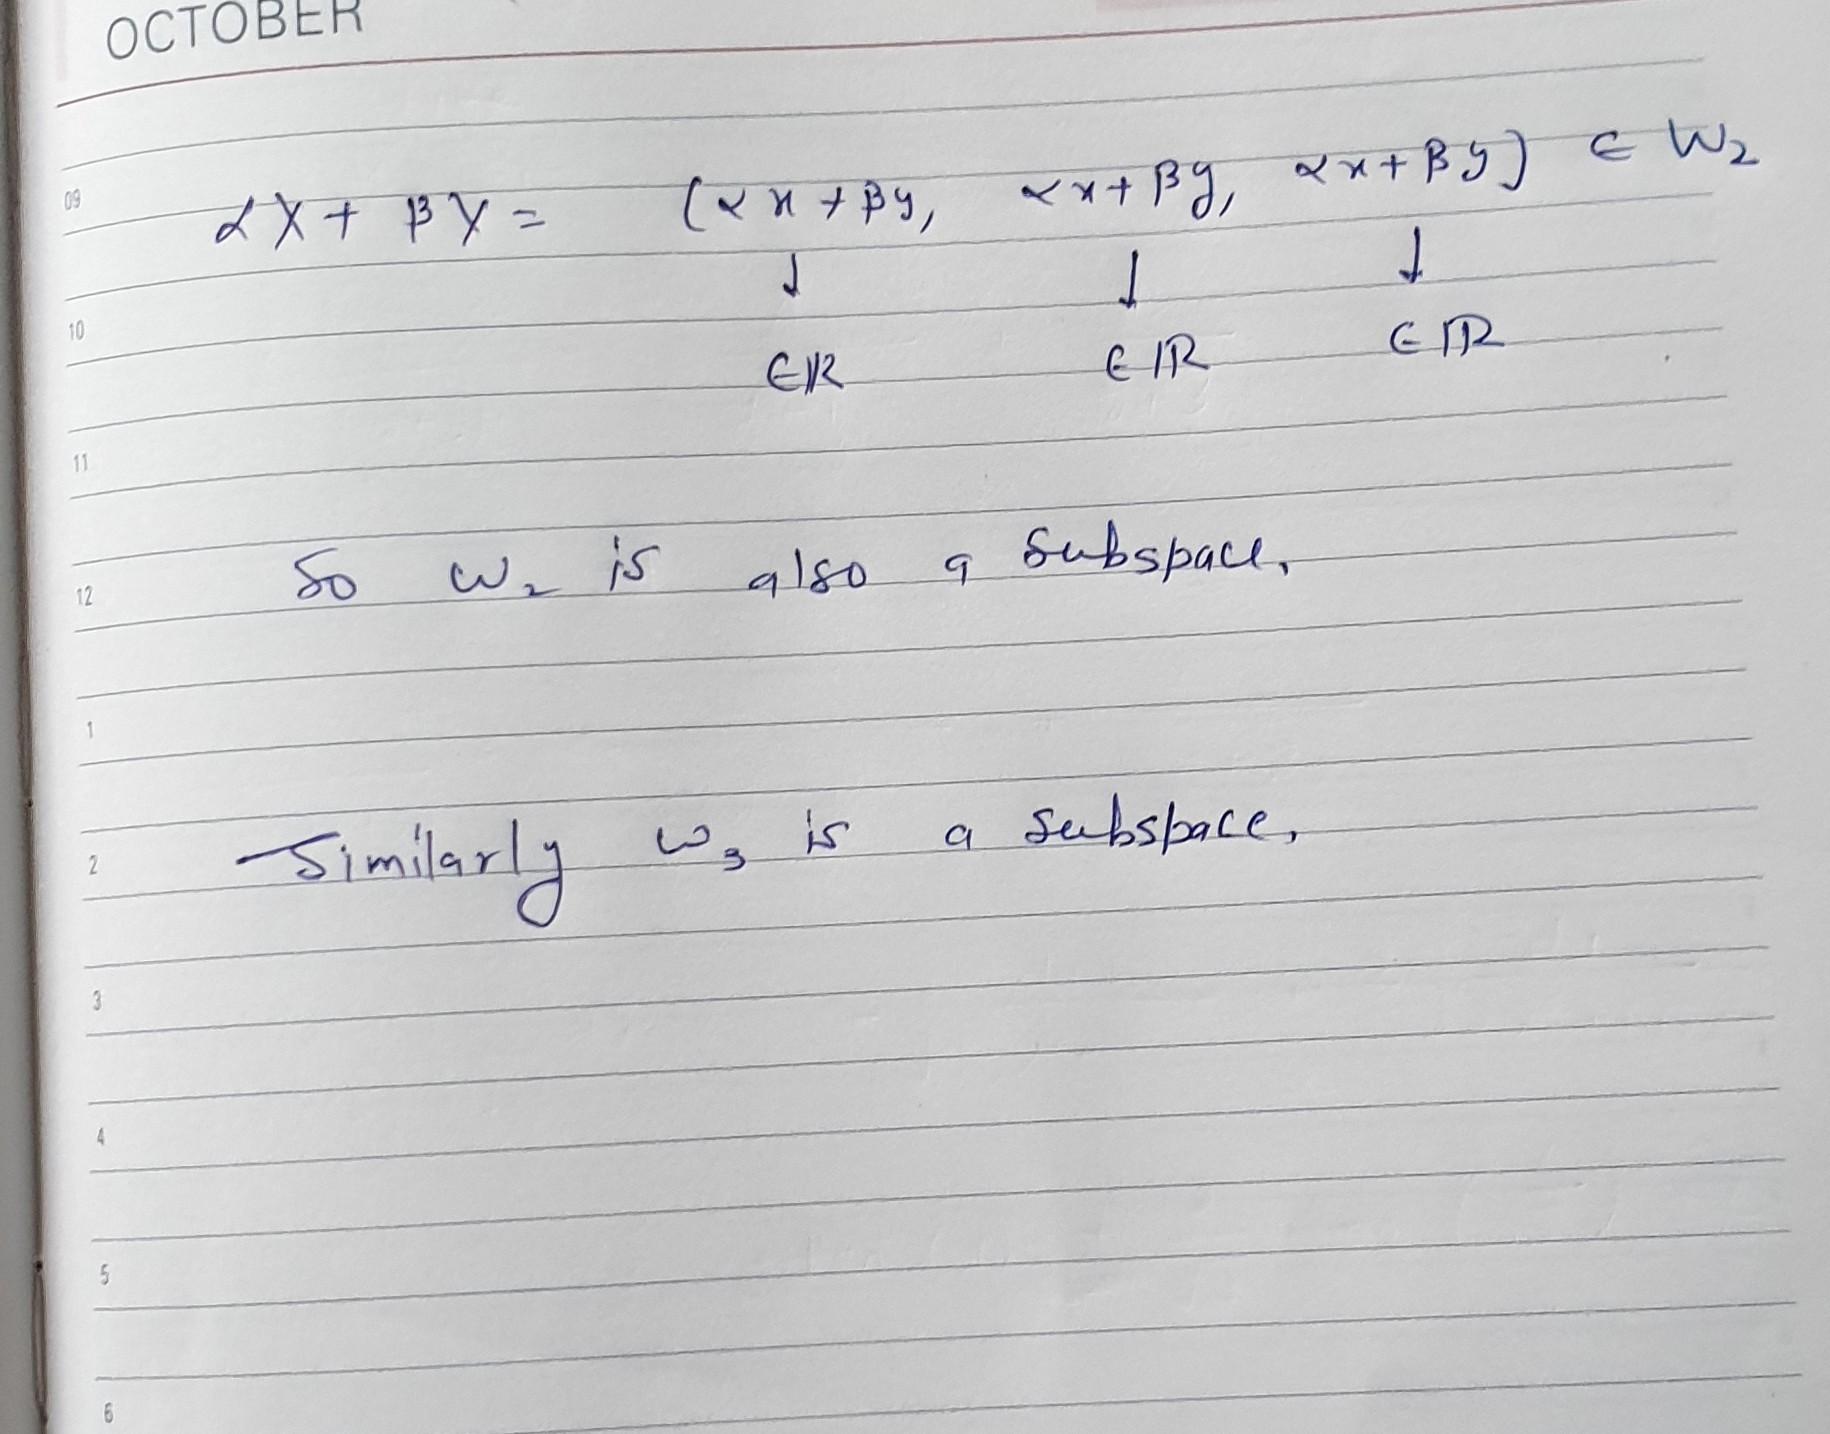 OCTOBER
09
αX + βY = (αx + βy, αx + βy, αx + βy) ∈ W₂
↓ ↓ ↓
10
∈ℝ ∈ℝ ∈ℝ
11
12 So W₂ is also a subspace.
1
2 Similarly W₃ is a subspace.
3
4
5
6